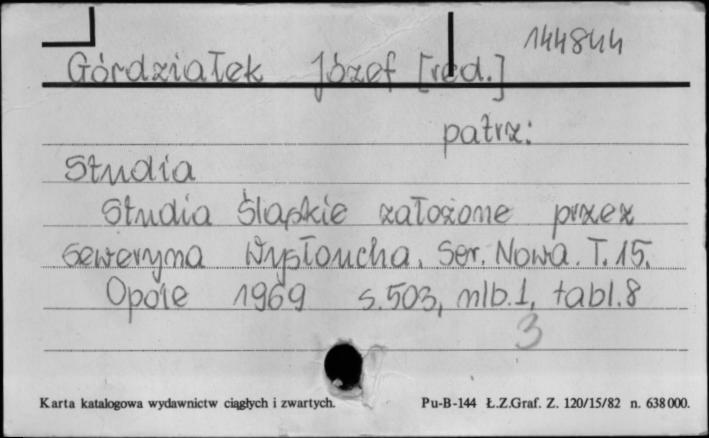 144844
Górdziałek Józef [red.]
patrz:
Studia
Studia Śląskie założone przez
Seweryna Wysłoucha. Ser. Nowa. T. 15.
Opole 1969 s.503, nlb.1, tabl.8
3
Karta katalogowa wydawnictw ciągłych i zwartych. Pu-B-144 Ł.Z.Graf. Z. 120/15/82 n. 638000.